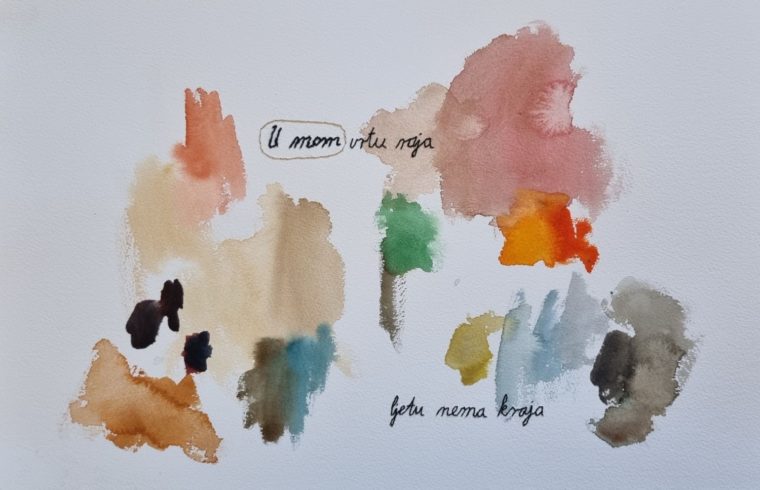 U mom vrtu raja
ljetu nema kraja